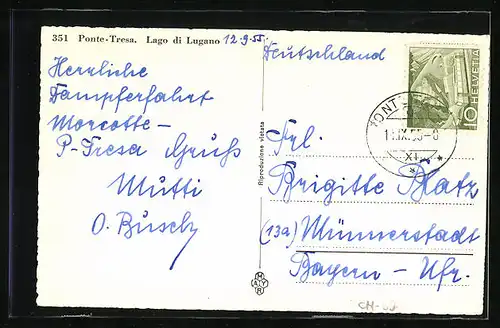 351 Ponte-Tresa. Lago di Lugano 12.9.55.
Herrliche
Dampferfahrt
Morcotte-
P-Tresa Gruß
Mutti
O. Busch
Riproduzione vietata
Deutschland
HELVETIA
10
PONT
1 .IX.55-8
XI
Frl.
Brigitte Platz
(13a) Münnerstadt
Bayern - Ufr.
CH-